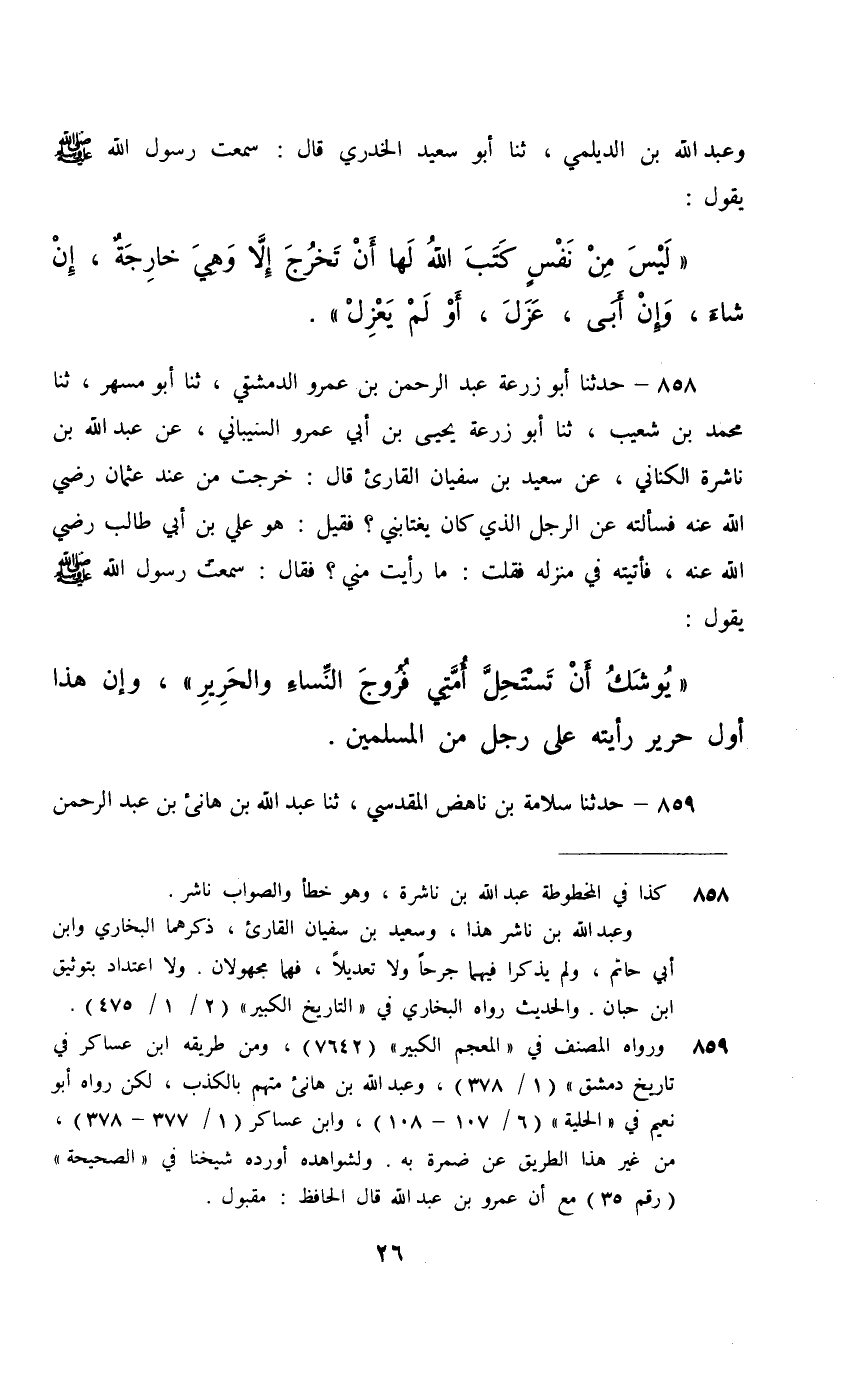 وعبد الله بن الديلمي ، ثنا أبو سعيد الخدري قال : سمعت رسول الله ﷺ
يقول :
« لَيْسَ مِنْ نَفْسٍ كَتَبَ اللهُ لَها أَنْ تَخرُجَ إِلَّا وَهِيَ خارِجَةٌ ، إِنْ
شاءَ ، وَإِنْ أَبَى ، عَزَلَ ، أَوْ لَمْ يَعْزِلْ » .
٨٥٨ – حدثنا أبو زرعة عبد الرحمن بن عمرو الدمشقي ، ثنا أبو مسهر ، ثنا
محمد بن شعيب ، ثنا أبو زرعة يحيى بن أبي عمرو السيباني ، عن عبد الله بن
ناشرة الكناني ، عن سعيد بن سفيان القارئ قال : خرجت من عند عثمان رضي
الله عنه فسألته عن الرجل الذي كان يغتابني ؟ فقيل : هو علي بن أبي طالب رضي
الله عنه ، فأتيته في منزله فقلت : ما رأيت مني ؟ فقال : سمعت رسول الله ﷺ
يقول :
« يُوشَكُ أَنْ تَسْتَحِلَّ أُمَّتِي فُرُوجَ النِّساءِ والحَرِيرِ » ، وإن هذا
أول حرير رأيته على رجل من المسلمين .
٨٥٩ – حدثنا سلامة بن ناهض المقدسي ، ثنا عبد الله بن هانئ بن عبد الرحمن
٨٥٨ كذا في المخطوطة عبد الله بن ناشرة ، وهو خطأ والصواب ناشر .
وعبد الله بن ناشر هذا ، وسعيد بن سفيان القارئ ، ذكرهما البخاري وابن
أبي حاتم ، ولم يذكرا فيهما جرحاً ولا تعديلاً ، فهما مجهولان . ولا اعتداد بتوثيق
ابن حبان . والحديث رواه البخاري في « التاريخ الكبير » ( ٢ / ١ / ٤٧٥ ) .
٨٥٩ ورواه المصنف في « المعجم الكبير » ( ٧٦٤٢ ) ، ومن طريقه ابن عساكر في
تاريخ دمشق » ( ١ / ٣٧٨ ) ، وعبد الله بن هانئ متهم بالكذب ، لكن رواه أبو
نعيم في « الحلية » ( ٦ / ١٠٧ – ١٠٨ ) ، وابن عساكر ( ١ / ٣٧٧ – ٣٧٨ ) ،
من غير هذا الطريق عن ضمرة به . ولشواهده أورده شيخنا في « الصحيحة »
( رقم ٣٥ ) مع أن عمرو بن عبد الله قال الحافظ : مقبول .
٢٦